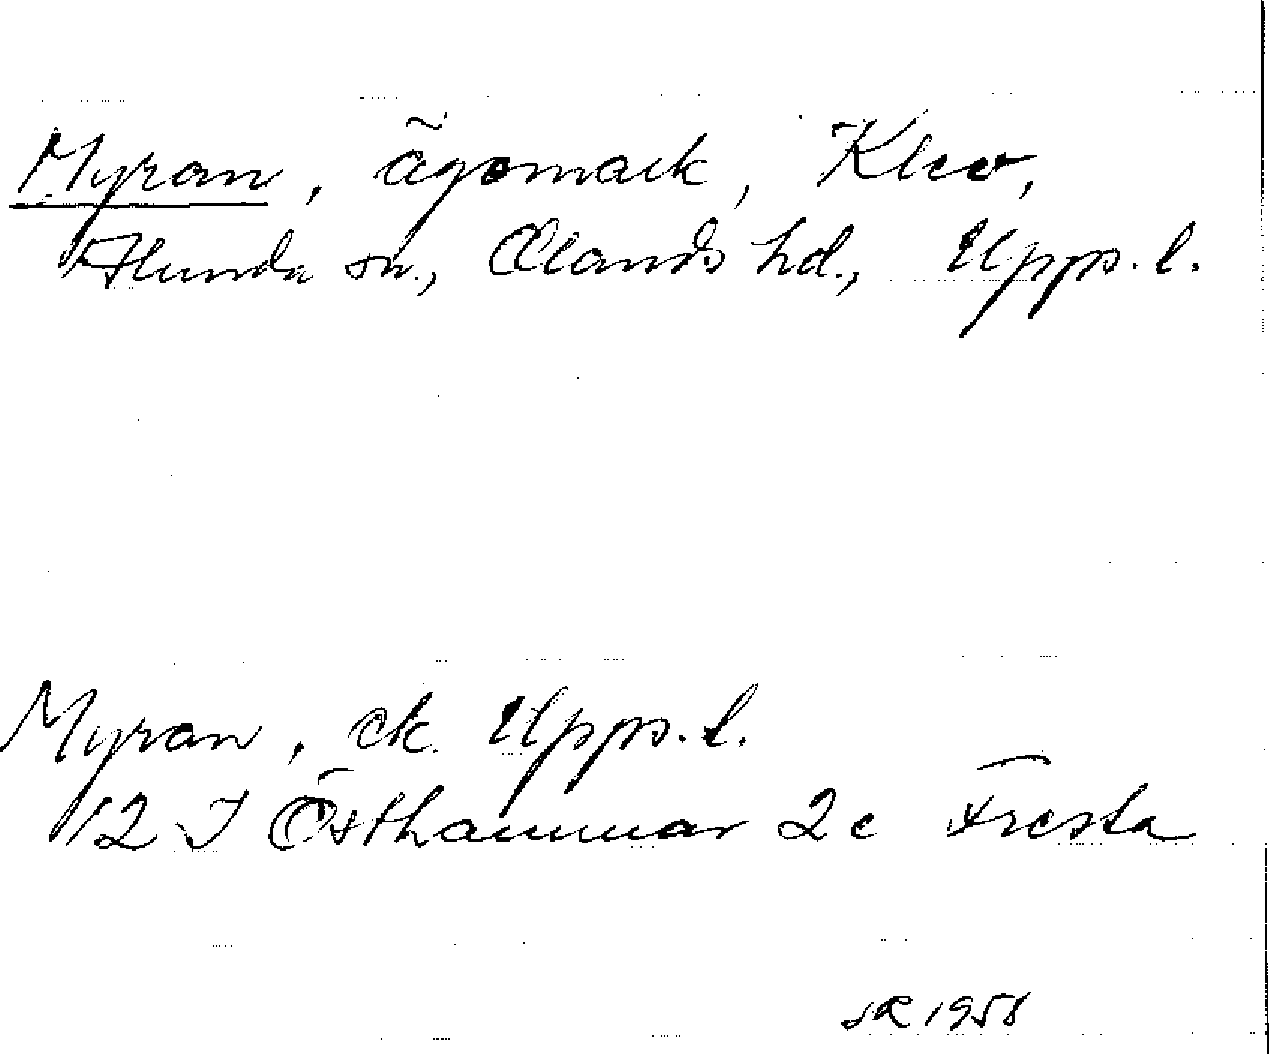 Myran, ägomark, Klev,
Alunda sn., Olands hd., Upps. l.
Myran, ek. Upps. l.
12 I Östhammar 2c Fresta
SR 1958